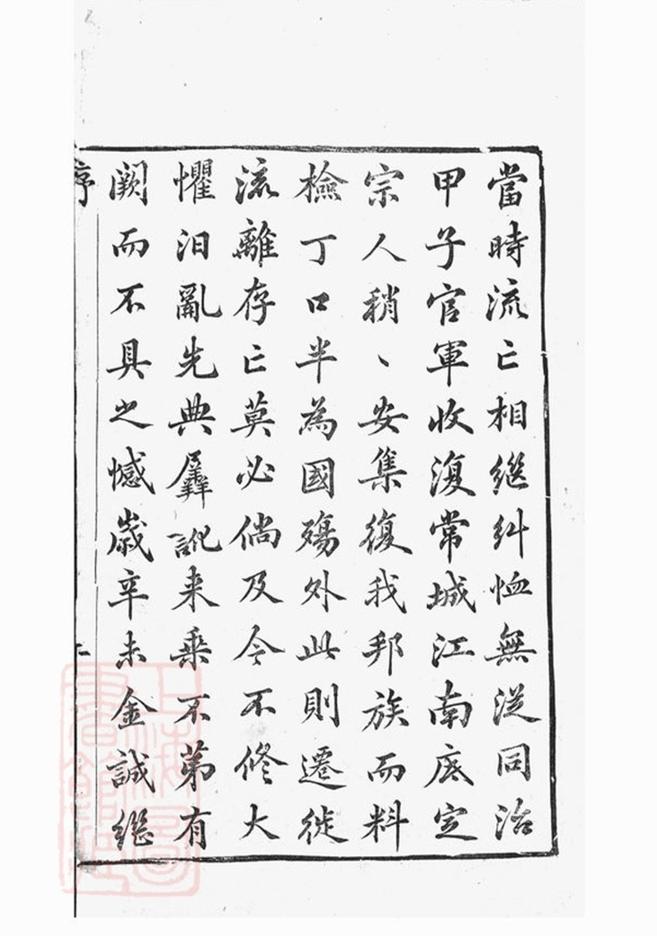 當時流亡相繼糾恤無從同治
甲子官軍收復常城江南底定
宗人稍、安集復我邦族而料
檢丁口半為國殤外此則遷徙
流離存亡莫必倘及今不修大
懼汨亂先典羼訛来乗不第有
闕而不具之憾歲辛未金誠繼
序